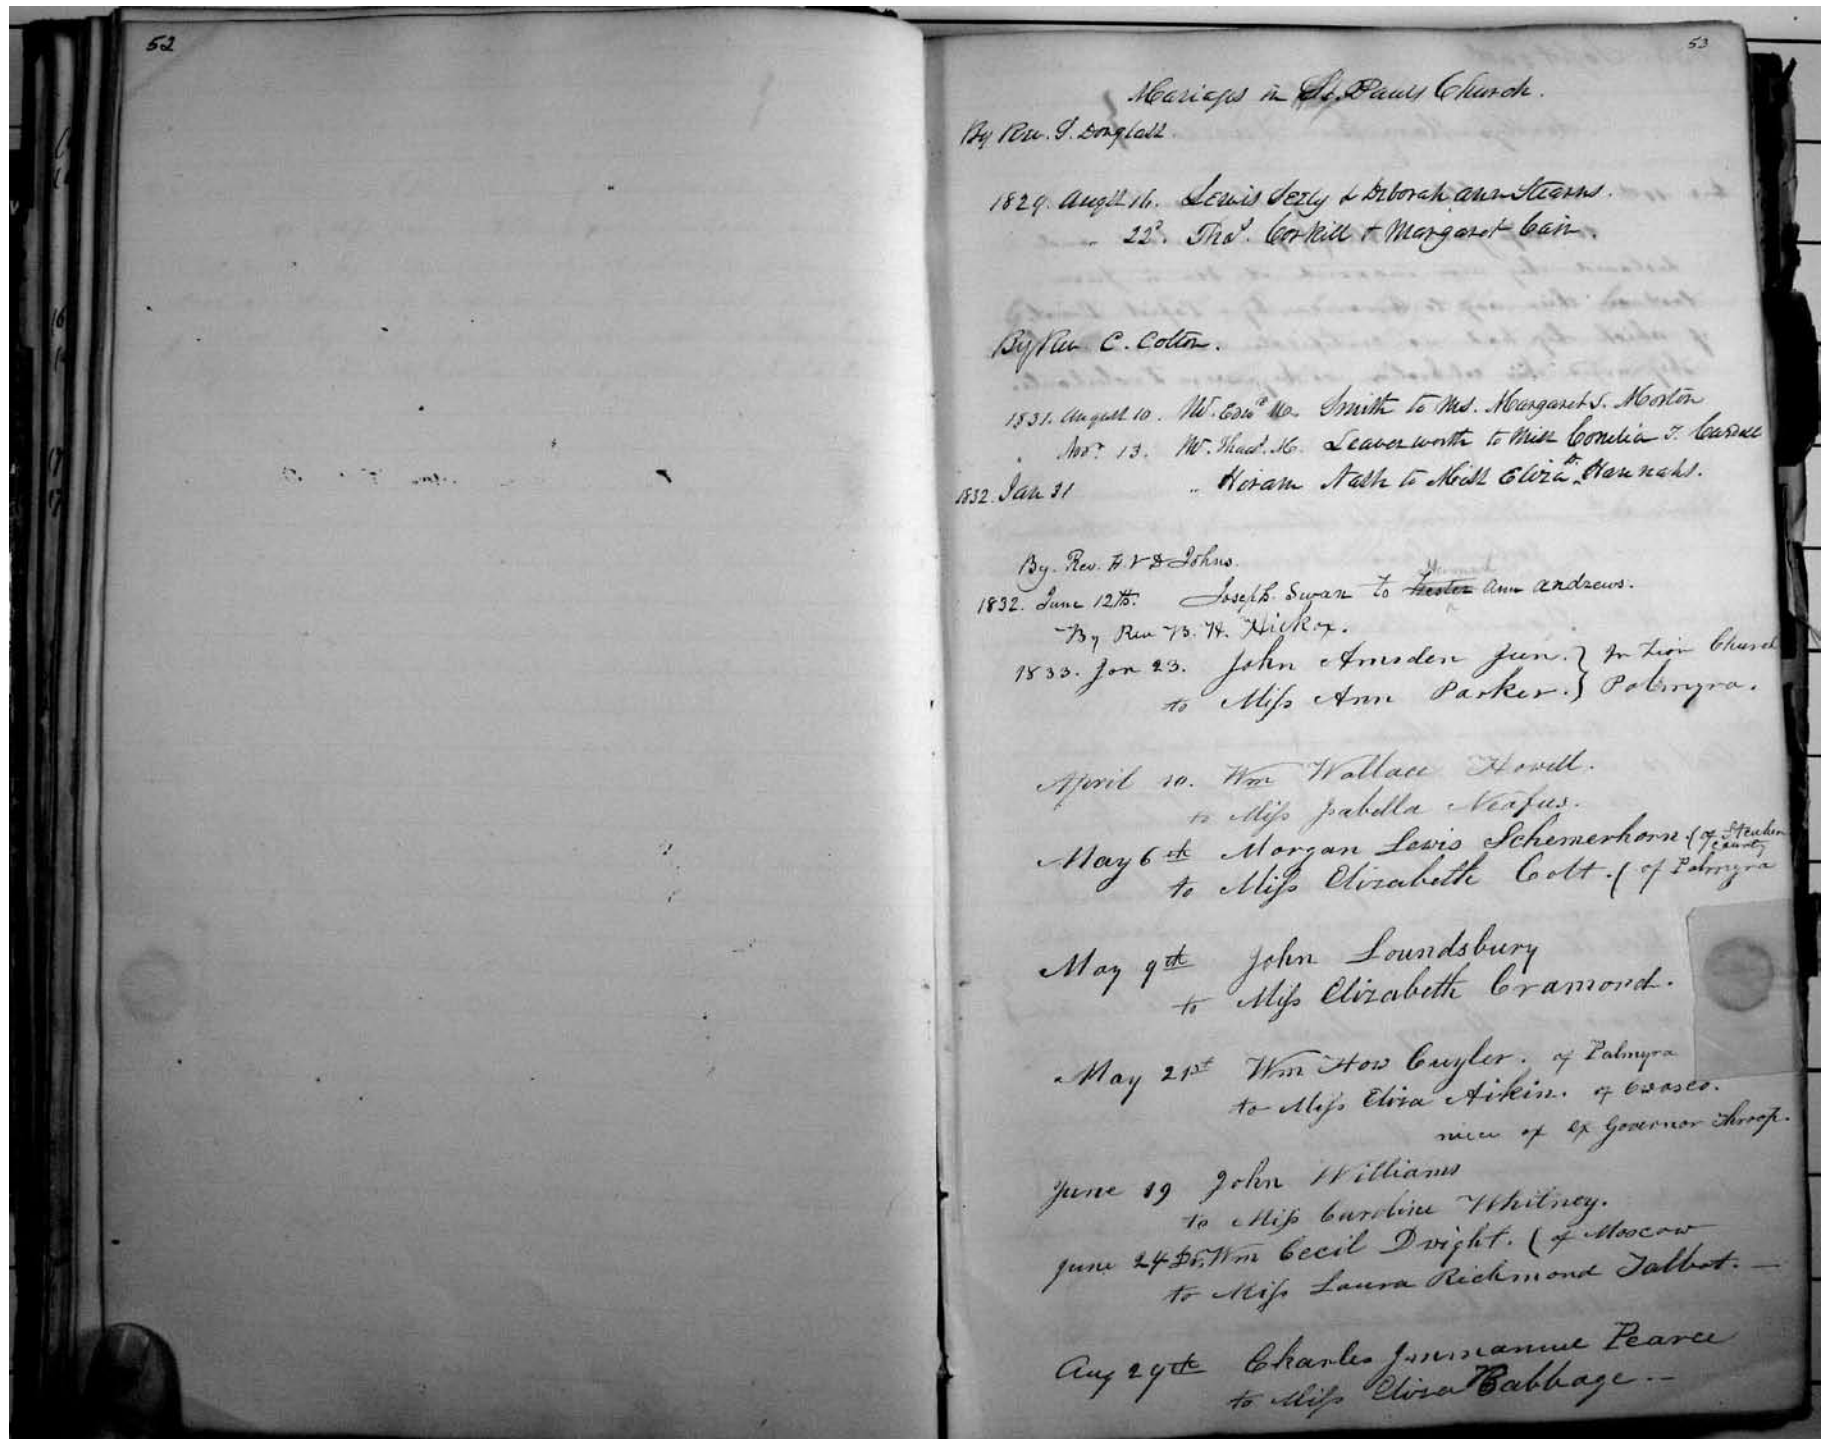 52
53
Mariages in St. Pauls Church.
By Rev. S. Douglass
1829. Augst 16. Lewis Seely & Deborah ann Stearns.
" 22d. Thos. Corkill & Margaret Cain.
By Rev. C. Colton.
1831. August 10. Mr. Edwd M. Smith to Ms. Margaret S. Morton
" Novr. 13. Mr. Thad. M. Leavenworth to Miss Cornelia T.
1832. Jan 31 " Hiram Nash to Miss Eliza Hannahs.
By Rev. H. V D Johns.
1832. June 12th. Joseph Swan to Hester Ann andrews.
By Rev B. H. Hickox.
1833. Jan 23. John Amsden Jun. } In Zion Church
to Miss Ann Parker. } Palmyra.
April 10. Wm Wallace Howell.
to Miss Isabella Neafus.
May 6th Morgan Lewis Schemerhorn ( of Steuben County
to Miss Elizabeth Colt. ( of Palmyra
May 9th John Loundsbury
to Miss Elizabeth Cramond.
May 21st Wm How Cuyler. of Palmyra
to Miss Eliza Aikin. of Owasco.
niece of ex Governor Throop.
June 19 John Williams
to Miss Caroline Whitney.
June 24 Dr. Wm Cecil Dwight. ( of Moscow
to Miss Laura Richmond Talbot. —
Aug 29th Charles Immanuel Pearce
to Miss Eliza Babbage. —